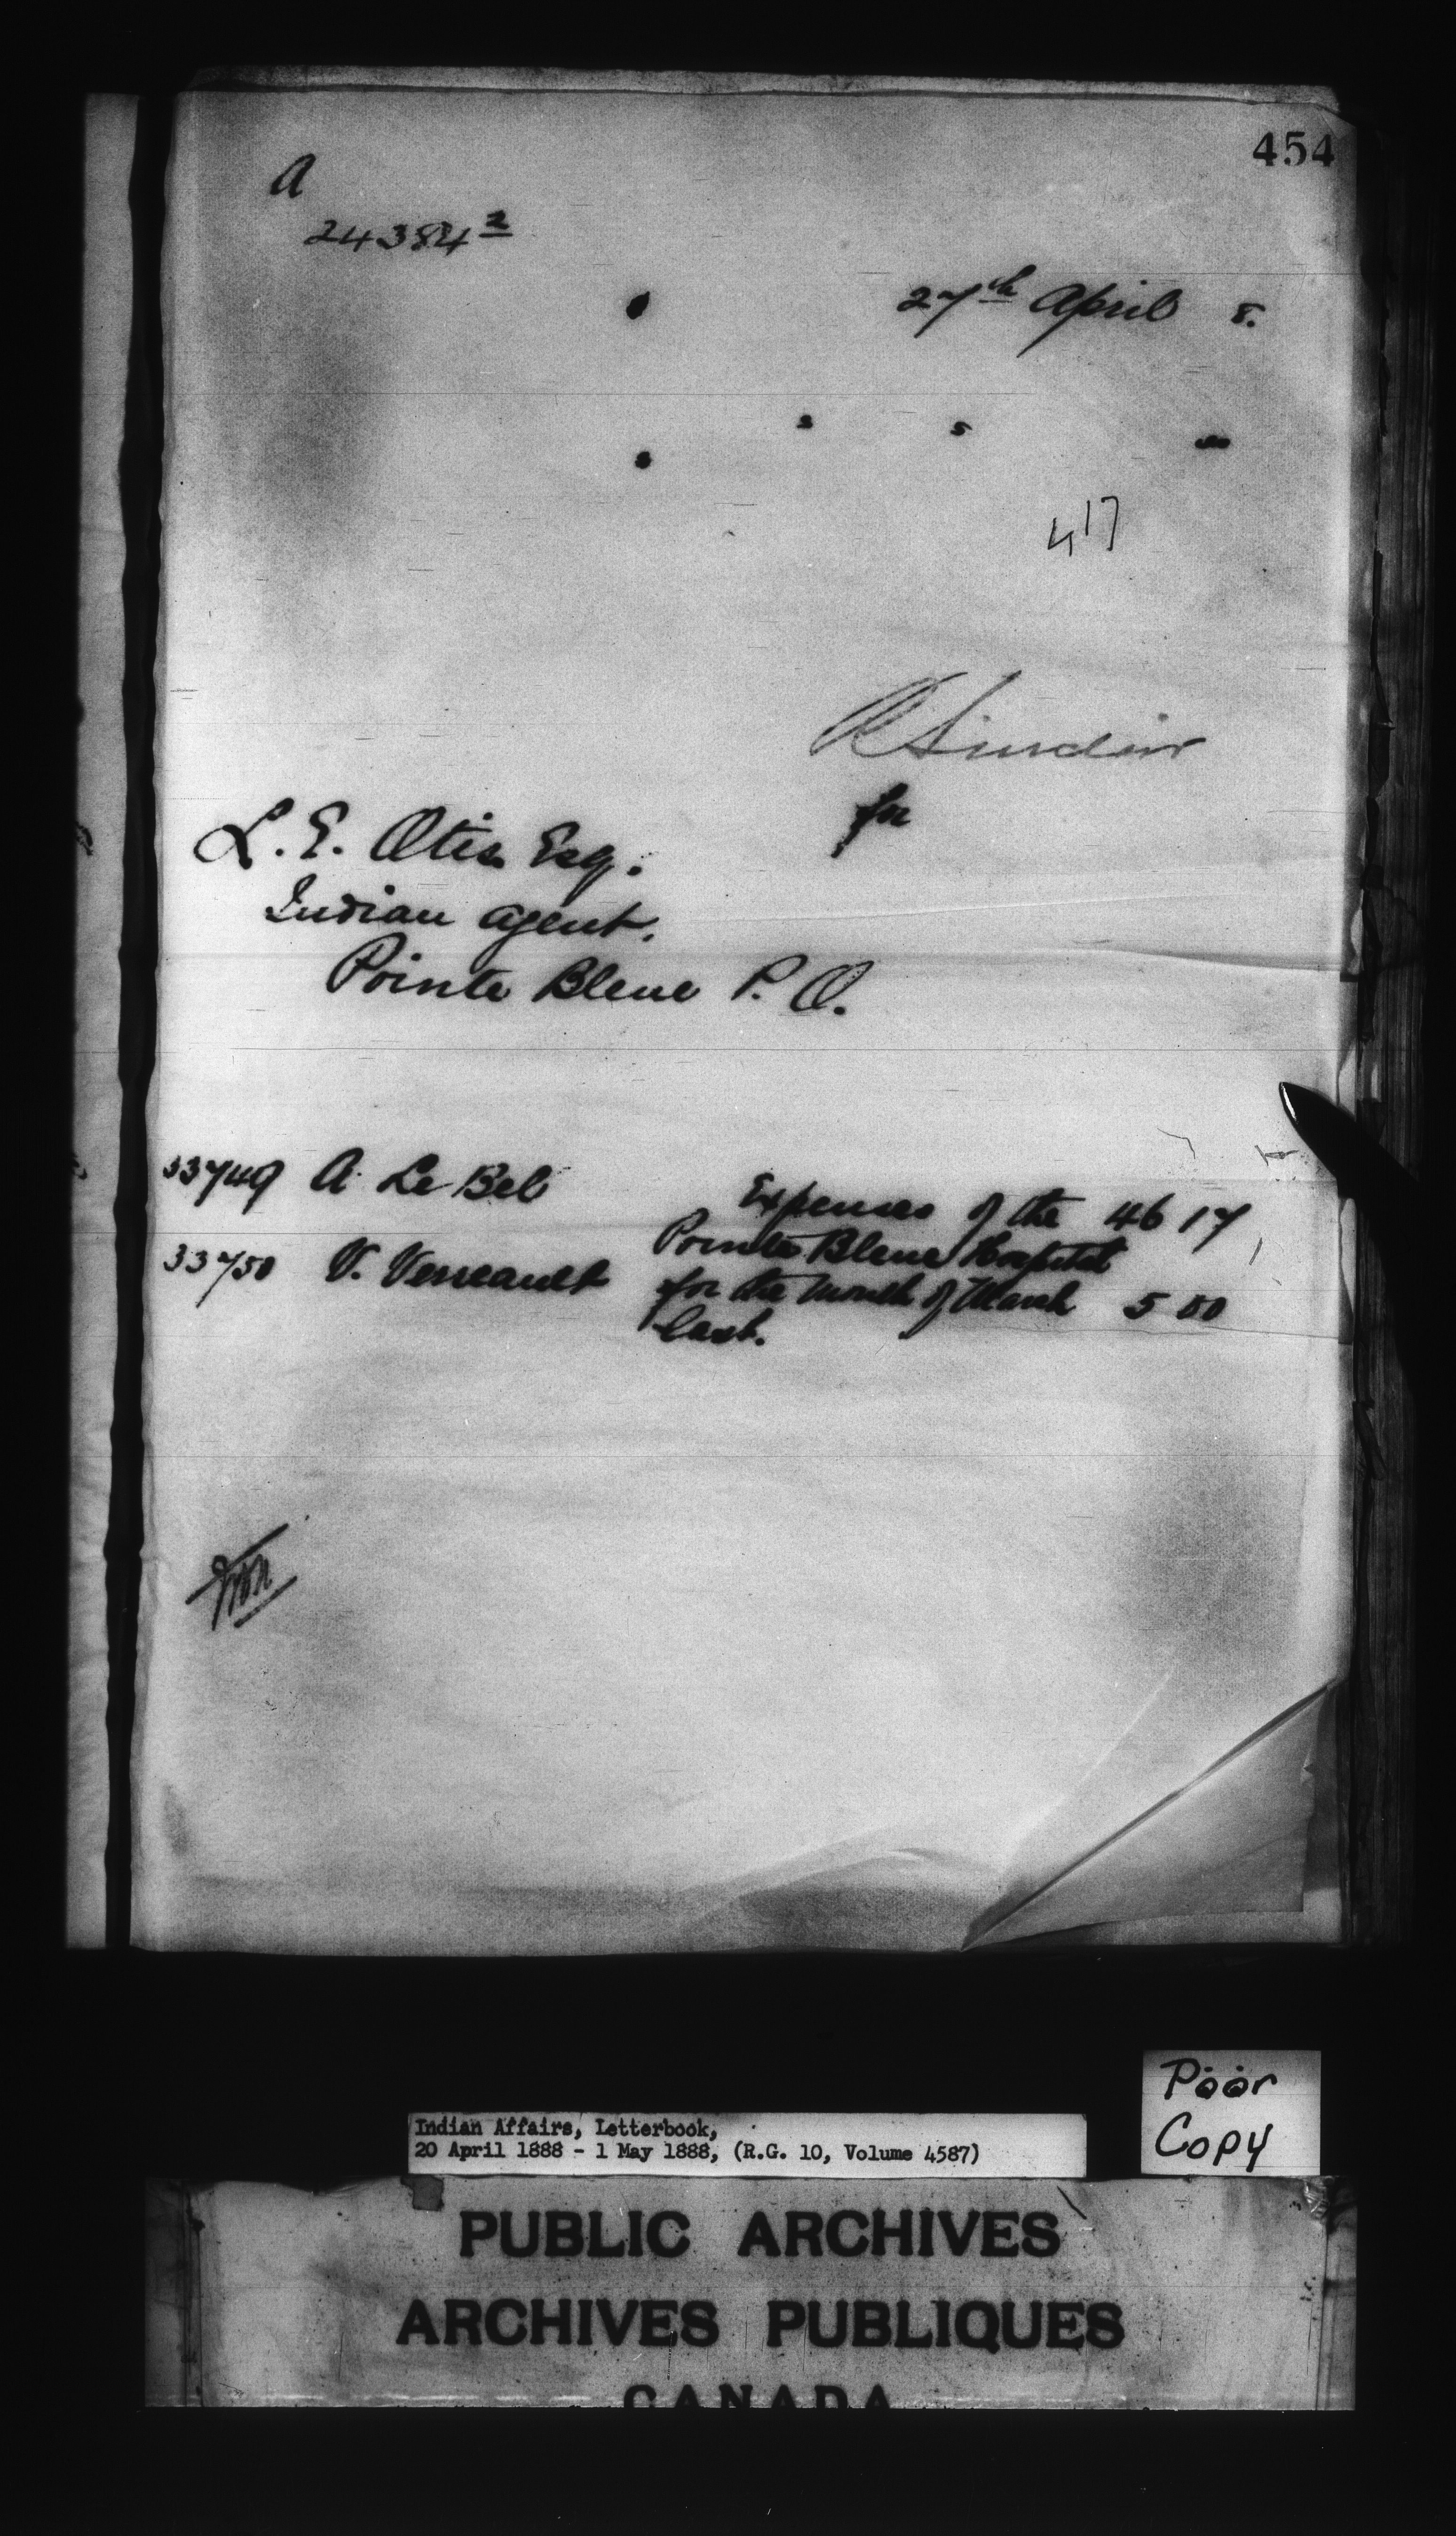 454
A
24384 2
27th April 8.
s s
s
417
R Sinclair
for
L. E. Otis Esq.
Indian Agent.
Pointe Bleue P. Q.
33749 A. Le Bel Expenses of the 46 17
Pointe Bleue Hospital
33750 V. Verreault for the month of March 5 00
last.
Poor
Copy
Indian Affairs, Letterbook,
20 April 1888 - 1 May 1888, (R.G. 10, Volume 4587)
PUBLIC ARCHIVES
ARCHIVES PUBLIQUES
CANADA